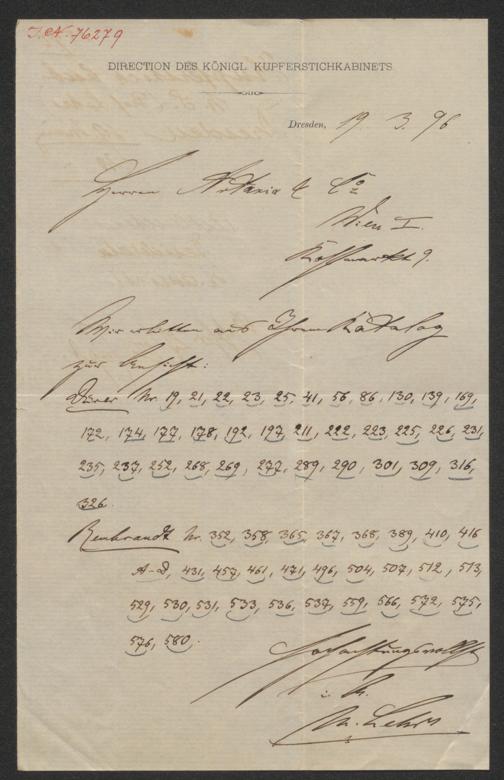 I.N. 76279
DIRECTION DES KÖNIGL. KUPFERSTICHKABINETS.
Dresden, 19 3. 96
Herren Artaria & Co
Wien I.
Kohlmarkt 9.
Wir erbitten aus Ihrem Katalog
zur Ansicht:
Dürer Nr. 19, 21, 22, 23, 25, 41, 56, 86, 130, 139, 169,
172, 174, 177, 178, 192, 197, 211, 222, 223, 225, 226, 231,
235, 237, 252, 268, 269, 277, 289, 290, 301, 309, 316,
326.
Rembrandt Nr. 352, 358, 365, 367, 368, 389, 410, 416
A-D, 431, 457, 461, 471, 496, 504, 507, 512, 513,
529, 530, 531, 533, 536, 537, 559, 566, 572, 575,
576, 580.
Hochachtungsvollst
M. Lehrs